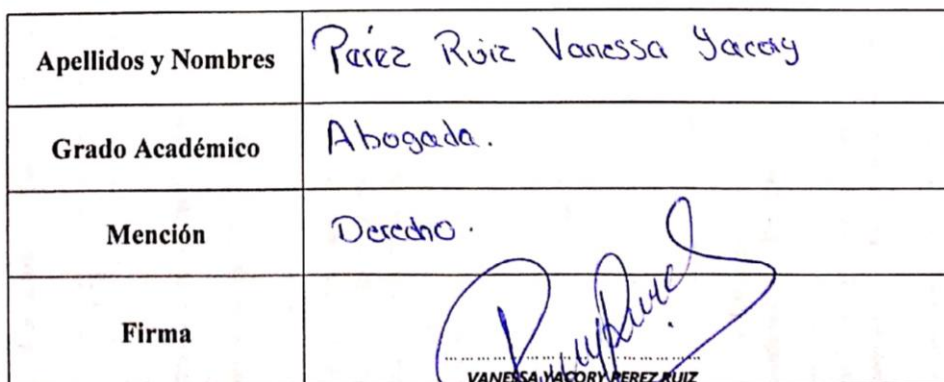 Apellidos y Nombres Peréz Ruiz Vanessa Yacory
Grado Académico Abogada.
Mención Derecho.
Firma
VANESSA YACORY PEREZ RUIZ